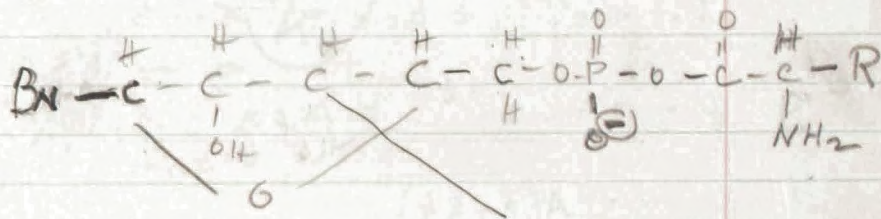 H H H H H O O H
BN — C — C — C — C — C — O — P — O — C — C — R
OH H O⊖ NH₂
O